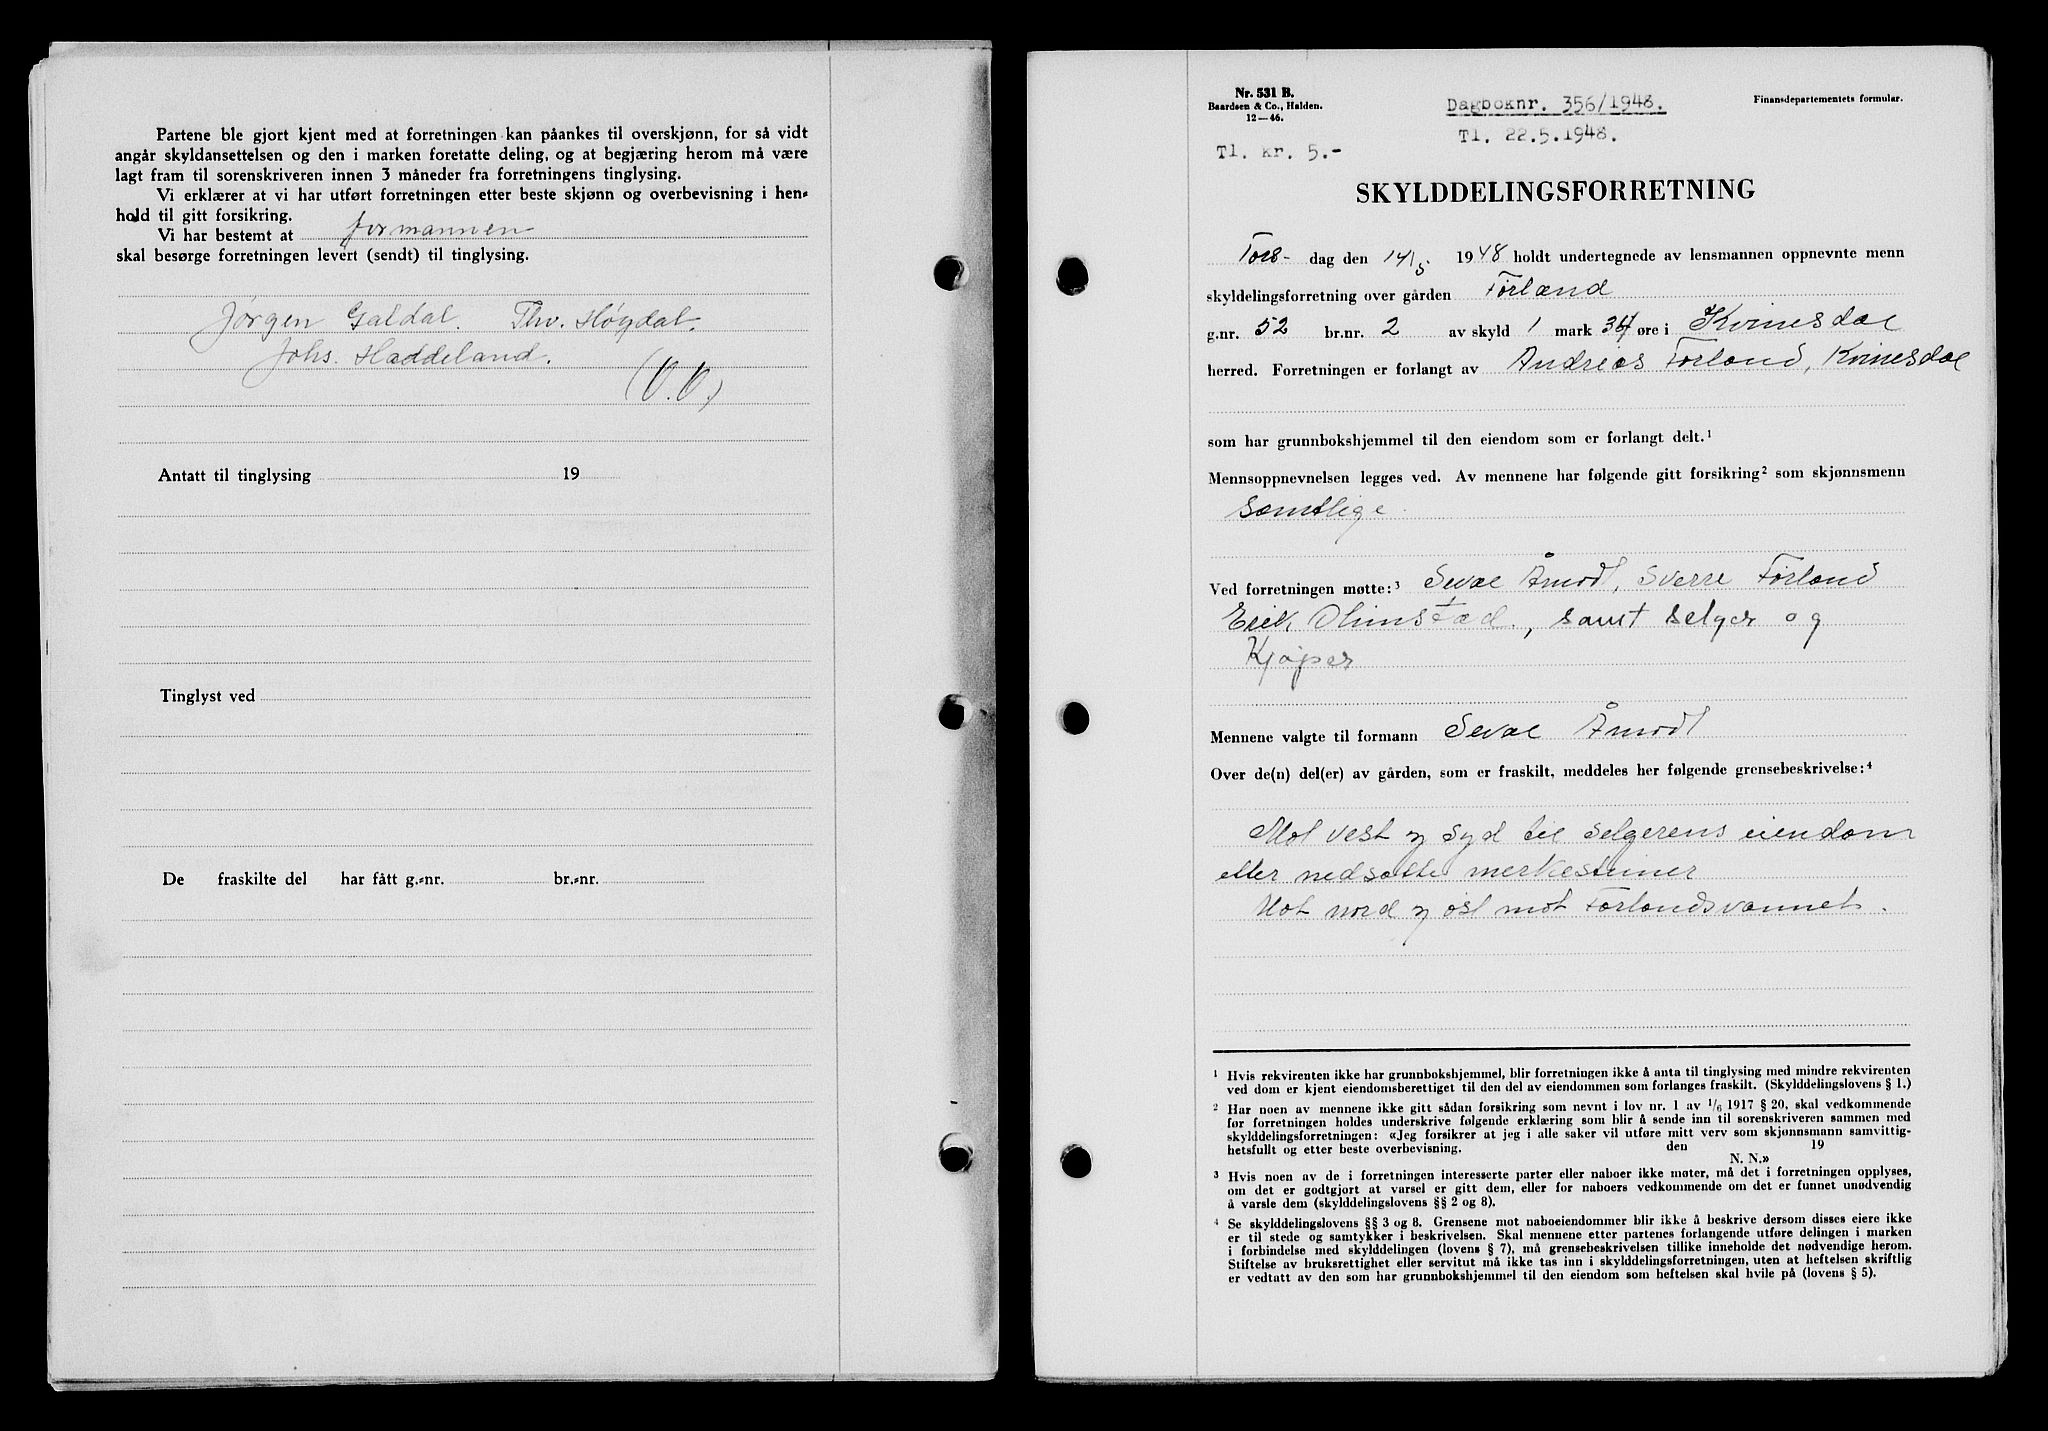 Partene ble gjort kjent med at forretningen kan påankes til overskjønn, for så vidt
angår skyldansettelsen og den i marken foretatte deling, og at begjæring herom må være
lagt fram til sorenskriveren innen 3 måneder fra forretningens tinglysing.
Vi erklærer at vi har utført forretningen etter beste skjønn og overbevisning i hen-
hold til gitt forsikring.
Vi har bestemt at formannen
skal besørge forretningen levert (sendt) til tinglysing.
Jørgen Galdal. Thv. Høydal.
Johs. Haddeland.
Antatt til tinglysing 19
Tinglyst ved
De fraskilte del har fått g.-nr. br.-nr.
Nr. 531 B.
Baardsen & Co., Halden.
12—46.
Dagboknr. 356/1948.
Finansdepartementets formular.
Tl. 22.5.1948.
Tl. kr. 5.-
SKYLDDELINGSFORRETNING
Tors- dag den 14/5 1948 holdt undertegnede av lensmannen oppnevnte menn
skyldelingsforretning over gården Førland
g.nr. 52 br.nr. 2 av skyld 1 mark 34 øre i Kvinesdal
herred. Forretningen er forlangt av Andreas Førland, Kvinesdal
som har grunnbokshjemmel til den eiendom som er forlangt delt.¹
Mennsoppnevnelsen legges ved. Av mennene har følgende gitt forsikring² som skjønnsmenn
samtlige.
Ved forretningen møtte:³ Seval Åmodt, Sverre Førland
Erik Olimstad., samt selger og
Kjøper
Mennene valgte til formann Seval Åmodt
Over de(n) del(er) av gården, som er fraskilt, meddeles her følgende grensebeskrivelse:⁴
Mot vest og syd til selgerens eiendom
etter nedsatte merkesteiner
Mot nord og øst mot Førlandsvannet.
¹ Hvis rekvirenten ikke har grunnbokshjemmel, blir forretningen ikke å anta til tinglysing med mindre rekvirenten
ved dom er kjent eiendomsberettiget til den del av eiendommen som forlanges fraskilt. (Skylddelingslovens § 1.)
² Har noen av mennene ikke gitt sådan forsikring som nevnt i lov nr. 1 av 1/6 1917 § 20, skal vedkommende
før forretningen holdes underskrive følgende erklæring som blir å sende inn til sorenskriveren sammen med
skylddelingsforretningen: «Jeg forsikrer at jeg i alle saker vil utføre mitt verv som skjønnsmann samvittig-
hetsfullt og etter beste overbevisning. den 19
N. N.»
³ Hvis noen av de i forretningen interesserte parter eller naboer ikke møter, må det i forretningen opplyses,
om det er godtgjort at varsel er gitt dem, eller for naboers vedkommende om det er funnet unødvendig
å varsle dem (skylddelingslovens §§ 2 og 8).
⁴ Se skylddelingslovens §§ 3 og 8. Grensene mot naboeiendommer blir ikke å beskrive dersom disses eiere ikke
er til stede og samtykker i beskrivelsen. Skal mennene etter partenes forlangende utføre delingen i marken
i forbindelse med skylddelingen (lovens § 7), må grensebeskrivelsen tillike inneholde det nødvendige herom.
Stiftelse av bruksrettighet eller servitut må ikke tas inn i skylddelingsforretningen, uten at heftelsen skriftlig
er vedtatt av den som har grunnbokshjemmel til den eiendom som heftelsen skal hvile på (lovens § 5).